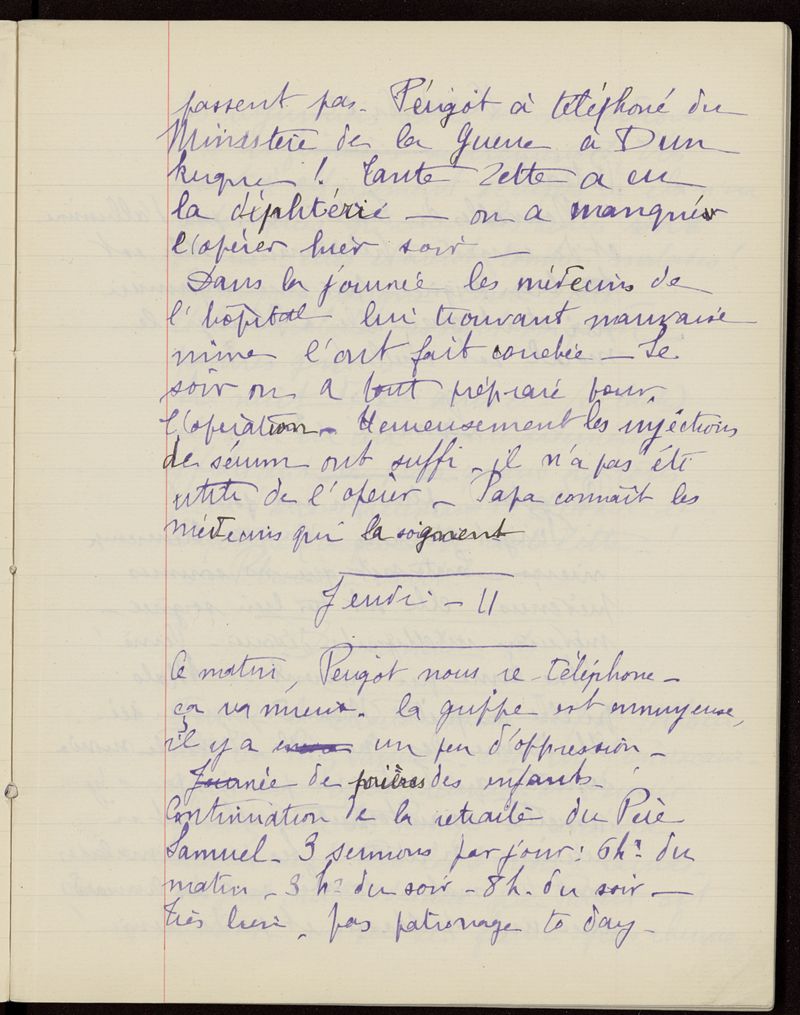 passent pas. Périgot à téléphoné du
Ministère de la Guerre à Dun
kerque ! Tante Zette a eu
la diphtérie — on a manqué
l'opérer hier soir —
Dans la journée les médecins de
l'hôpital lui trouvant mauvaise
mine l'ont fait couchée — Le
soir on a tout préparé pour
l'opération. Heureusement les injections
de sérum ont suffi - il n'a pas été
utile de l'opérer - Papa connaît les
médecins qui la soignent
Jeudi - 11
Ce matin, Perigot nous re-téléphone -
ça va mieux. la grippe est ennuyeuse,
il y a un peu d'oppression -
Journée de prières des enfants.
Continuation de la retraite du Père
Samuel - 3 sermons par jour : 6h. du
matin - 3 h. du soir - 8h. du soir —
très bien, pas patronage to day -